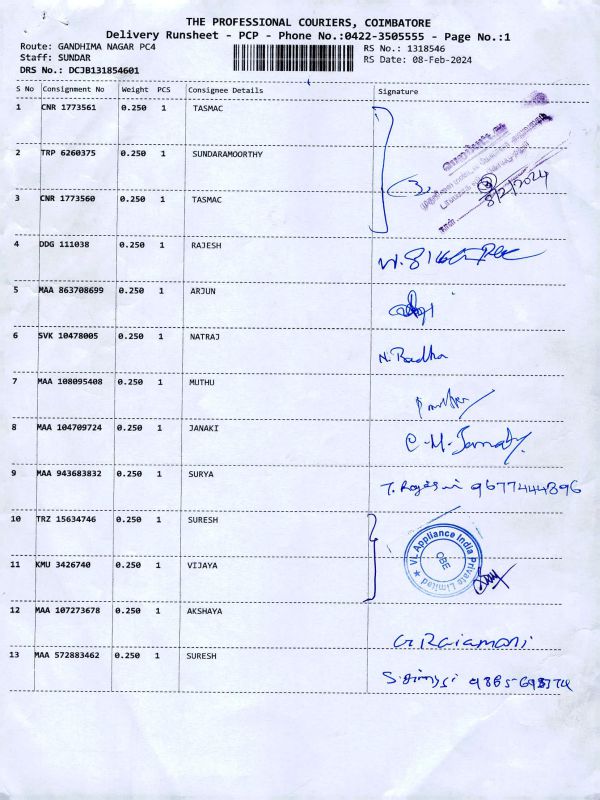 THE PROFESSIONAL COURIERS, COIMBATORE
Delivery Runsheet - PCP - Phone No.:0422-3505555 - Page No.:1
Route: GANDHIMA NAGAR PC4 RS No.: 1318546
Staff: SUNDAR RS Date: 08-Feb-2024
DRS No.: DCJB131854601
S No Consignment No Weight PCS Consignee Details Signature
1 CNR 1773561 0.250 1 TASMAC
2 TRP 6260375 0.250 1 SUNDARAMOORTHY
(3) 8/2/2024
3 CNR 1773560 0.250 1 TASMAC
4 DDG 111038 0.250 1 RAJESH
5 MAA 863708699 0.250 1 ARJUN
6 SVK 10478005 0.250 1 NATRAJ
N. Radha
7 MAA 108095408 0.250 1 MUTHU
8 MAA 104709724 0.250 1 JANAKI
9 MAA 943683832 0.250 1 SURYA
9677444896
10 TRZ 15634746 0.250 1 SURESH
VL Appliance India Private Limited
CBE
11 KMU 3426740 0.250 1 VIJAYA
12 MAA 107273678 0.250 1 AKSHAYA
G Rajamani
13 MAA 572883462 0.250 1 SURESH